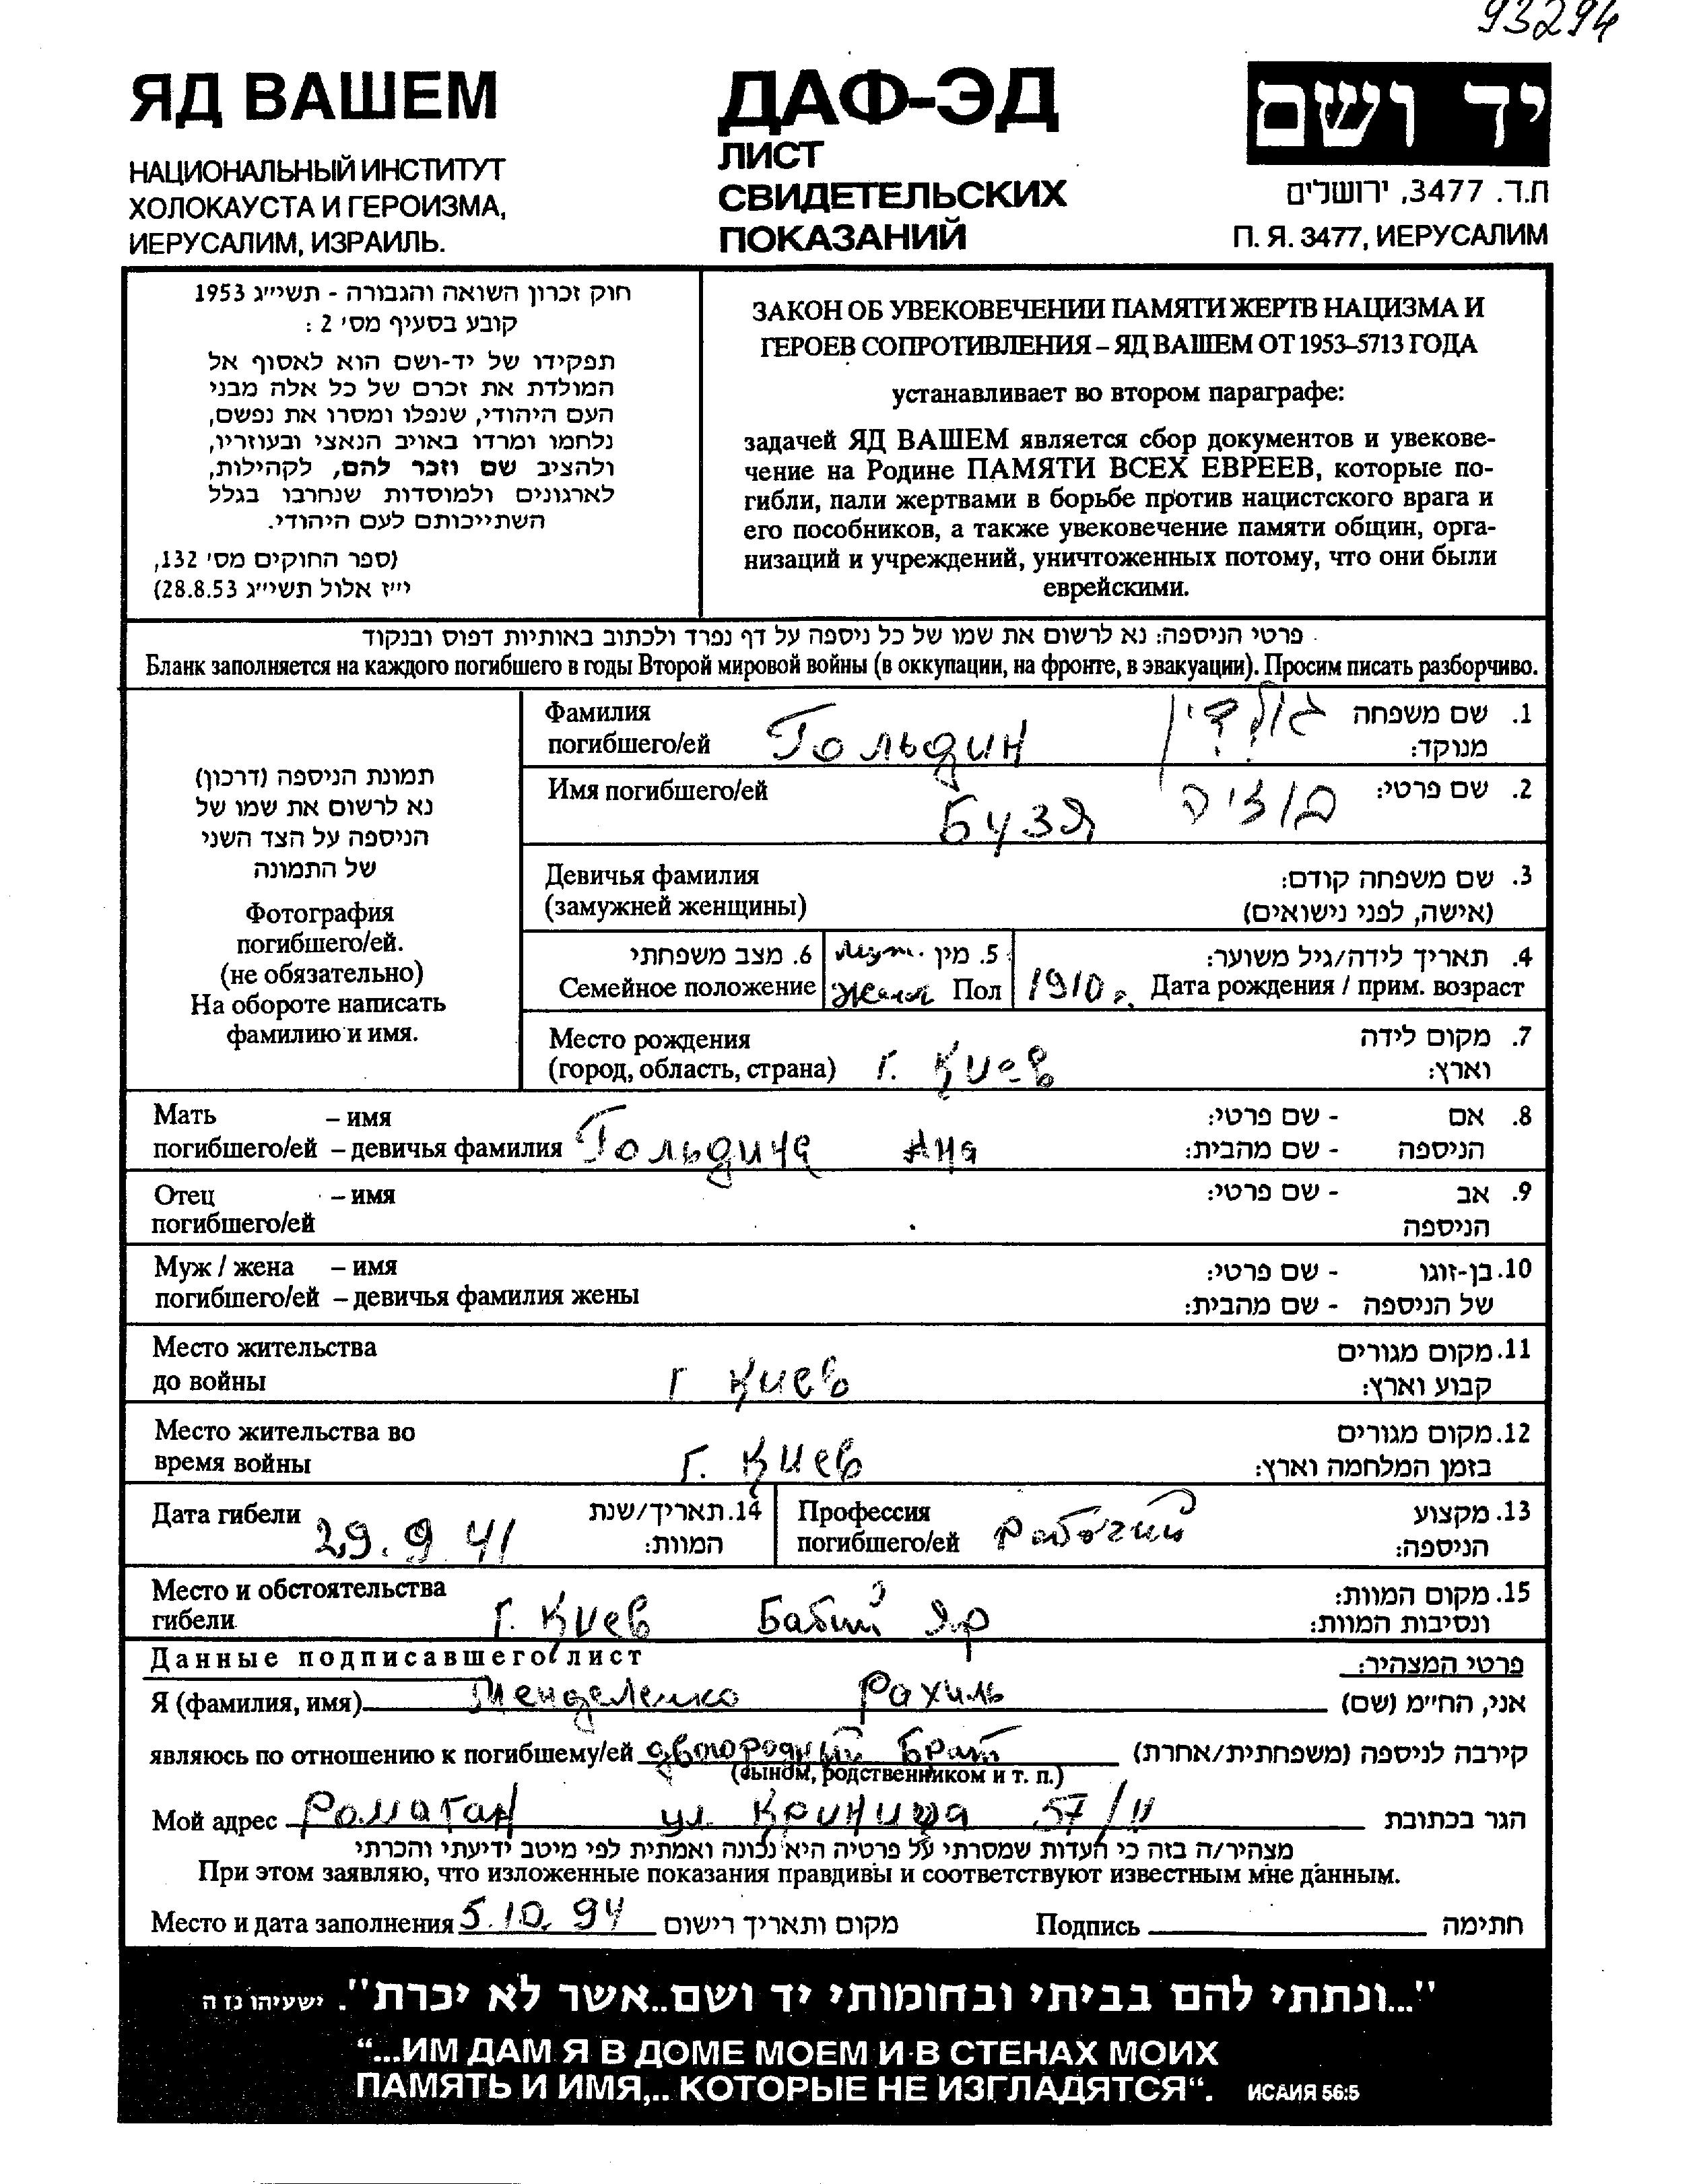 93294
ЯД ВАШЕМ
НАЦИОНАЛЬНЫЙ ИНСТИТУТ
ХОЛОКАУСТА И ГЕРОИЗМА,
ИЕРУСАЛИМ, ИЗРАИЛЬ.
ДАФ-ЭД
ЛИСТ
СВИДЕТЕЛЬСКИХ
ПОКАЗАНИЙ
יד ושם
ת.ד. 3477, ירושלים
П. Я. 3477, ИЕРУСАЛИМ
חוק זכרון השואה והגבורה - תשי״ג 1953
קובע בסעיף מס׳ 2 :
תפקידו של יד-ושם הוא לאסוף אל
המולדת את זכרם של כל אלה מבני
העם היהודי, שנפלו ומסרו את נפשם,
נלחמו ומרדו באויב הנאצי ובעוזריו,
ולהציב שם וזכר להם, לקהילות,
לארגונים ולמוסדות שנחרבו בגלל
השתייכותם לעם היהודי.
(ספר החוקים מס׳ 132,
י״ז אלול תשי״ג 28.8.53)
ЗАКОН ОБ УВЕКОВЕЧЕНИИ ПАМЯТИ ЖЕРТВ НАЦИЗМА И
ГЕРОЕВ СОПРОТИВЛЕНИЯ – ЯД ВАШЕМ ОТ 1953–5713 ГОДА
устанавливает во втором параграфе:
задачей ЯД ВАШЕМ является сбор документов и увекове-
чение на Родине ПАМЯТИ ВСЕХ ЕВРЕЕВ, которые по-
гибли, пали жертвами в борьбе против нацистского врага и
его пособников, а также увековечение памяти общин, орга-
низаций и учреждений, уничтоженных потому, что они были
еврейскими.
פרטי הניספה: נא לרשום את שמו של כל ניספה על דף נפרד ולכתוב באותיות דפוס ובנקוד
Бланк заполняется на каждого погибшего в годы Второй мировой войны (в оккупации, на фронте, в эвакуации). Просим писать разборчиво.
תמונת הניספה (דרכון)
נא לרשום את שמו של
הניספה על הצד השני
של התמונה
Фотография
погибшего/ей.
(не обязательно)
На обороте написать
фамилию и имя.
Фамилия
погибшего/ей Гольдин גולדין
1. שם משפחה
מנוקד:
Имя погибшего/ей Бузя בוזיה 2. שם פרטי:
Девичья фамилия
(замужней женщины)
3. שם משפחה קודם:
(אישה, לפני נישואים)
6. מצב משפחתי
Семейное положение
5. מין муж.
Пол жен
4. תאריך לידה/גיל משוער:
1910 г. Дата рождения / прим. возраст
Место рождения
(город, область, страна) г. Киев
7. מקום לידה
וארץ:
Мать – имя
погибшего/ей – девичья фамилия Гольдина Аня
8. אם - שם פרטי:
הניספה - שם מהבית:
Отец – имя
погибшего/ей
9. אב - שם פרטי:
הניספה
Муж / жена – имя
погибшего/ей – девичья фамилия жены
10. בן-זוגו - שם פרטי:
של הניספה - שם מהבית:
Место жительства
до войны г Киев
11. מקום מגורים
קבוע וארץ:
Место жительства во
время войны г. Киев
12. מקום מגורים
בזמן המלחמה וארץ:
Дата гибели 29.9 41
14. תאריך/שנת
המוות:
Профессия
погибшего/ей рабочий
13. מקצוע
הניספה:
Место и обстоятельства
гибели г. Киев Бабий Яр
15. מקום המוות:
ונסיבות המוות:
Данные подписавшего лист פרטי המצהיר:
Я (фамилия, имя) Менделенко Рахиль אני, הח״מ (שם)
являюсь по отношению к погибшему/ей двоюродный брат קירבה לניספה (משפחתית/אחרת)
(сыном, родственником и т. п.)
Мой адрес Раматган ул. Криници 57/11 הגר בכתובת
מצהיר/ה בזה כי העדות שמסרתי על פרטיה היא נכונה ואמתית לפי מיטב ידיעתי והכרתי.
При этом заявляю, что изложенные показания правдивы и соответствуют известным мне данным.
Место и дата заполнения 5.10.94 מקום ותאריך רישום Подпись חתימה
"...ונתתי להם בביתי ובחומותי יד ושם..אשר לא יכרת". ישעיהו נז ה
“...ИМ ДАМ Я В ДОМЕ МОЕМ И В СТЕНАХ МОИХ
ПАМЯТЬ И ИМЯ,.. КОТОРЫЕ НЕ ИЗГЛАДЯТСЯ“. ИСАИЯ 56:5